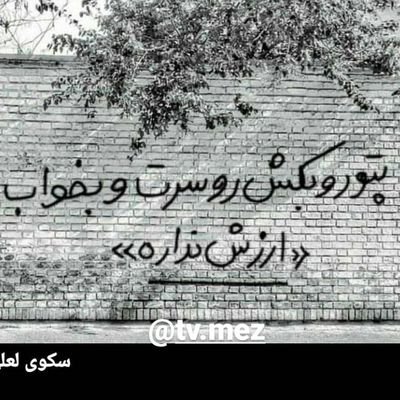 پتو رو بکش رو سرت و بخواب
«ارزش نداره»
@tv.mez
سکوی لعل